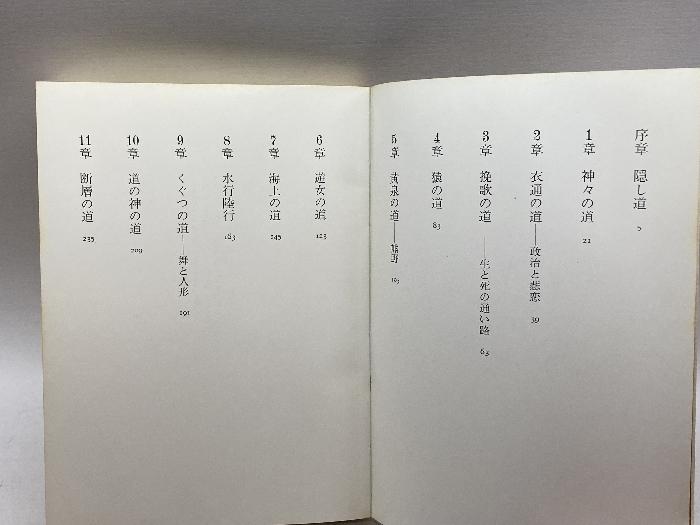 序章 隠し道 5
1章 神々の道 21
2章 衣通の道──政治と悲恋 39
3章 挽歌の道──生と死の通い路 63
4章 猿の道 83
5章 黄泉の道──熊野 103
6章 遊女の道 123
7章 海上の道 145
8章 水行陸行 163
9章 くぐつの道──舞と人形 191
10章 道の神の道 209
11章 断層の道 235